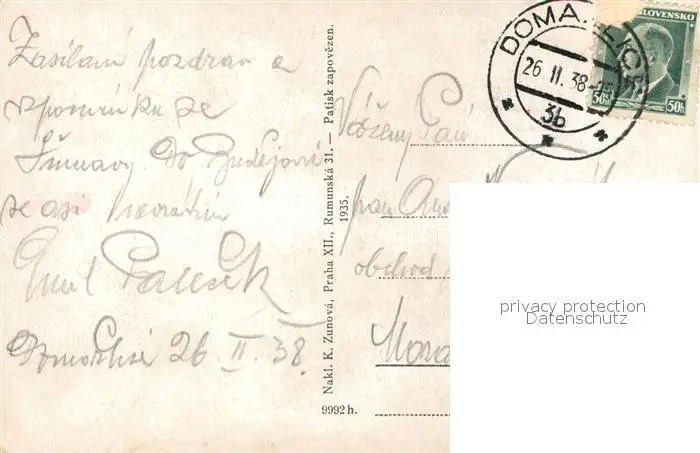 Zasílám pozdrav a
vzpomínku ze
Šumavy. Do Budějovic
se asi nevrátím
Emil
26 II. 38.
Nakl. K. Zunová, Praha XII., Rumunská 31. — Patisk zapovězen.
1935.
9992 h.
DOMA
26 II. 38
3b
SLOVENSKO
50h 50h
Vážený Pán
obchod
Mora
privacy protection
Datenschutz